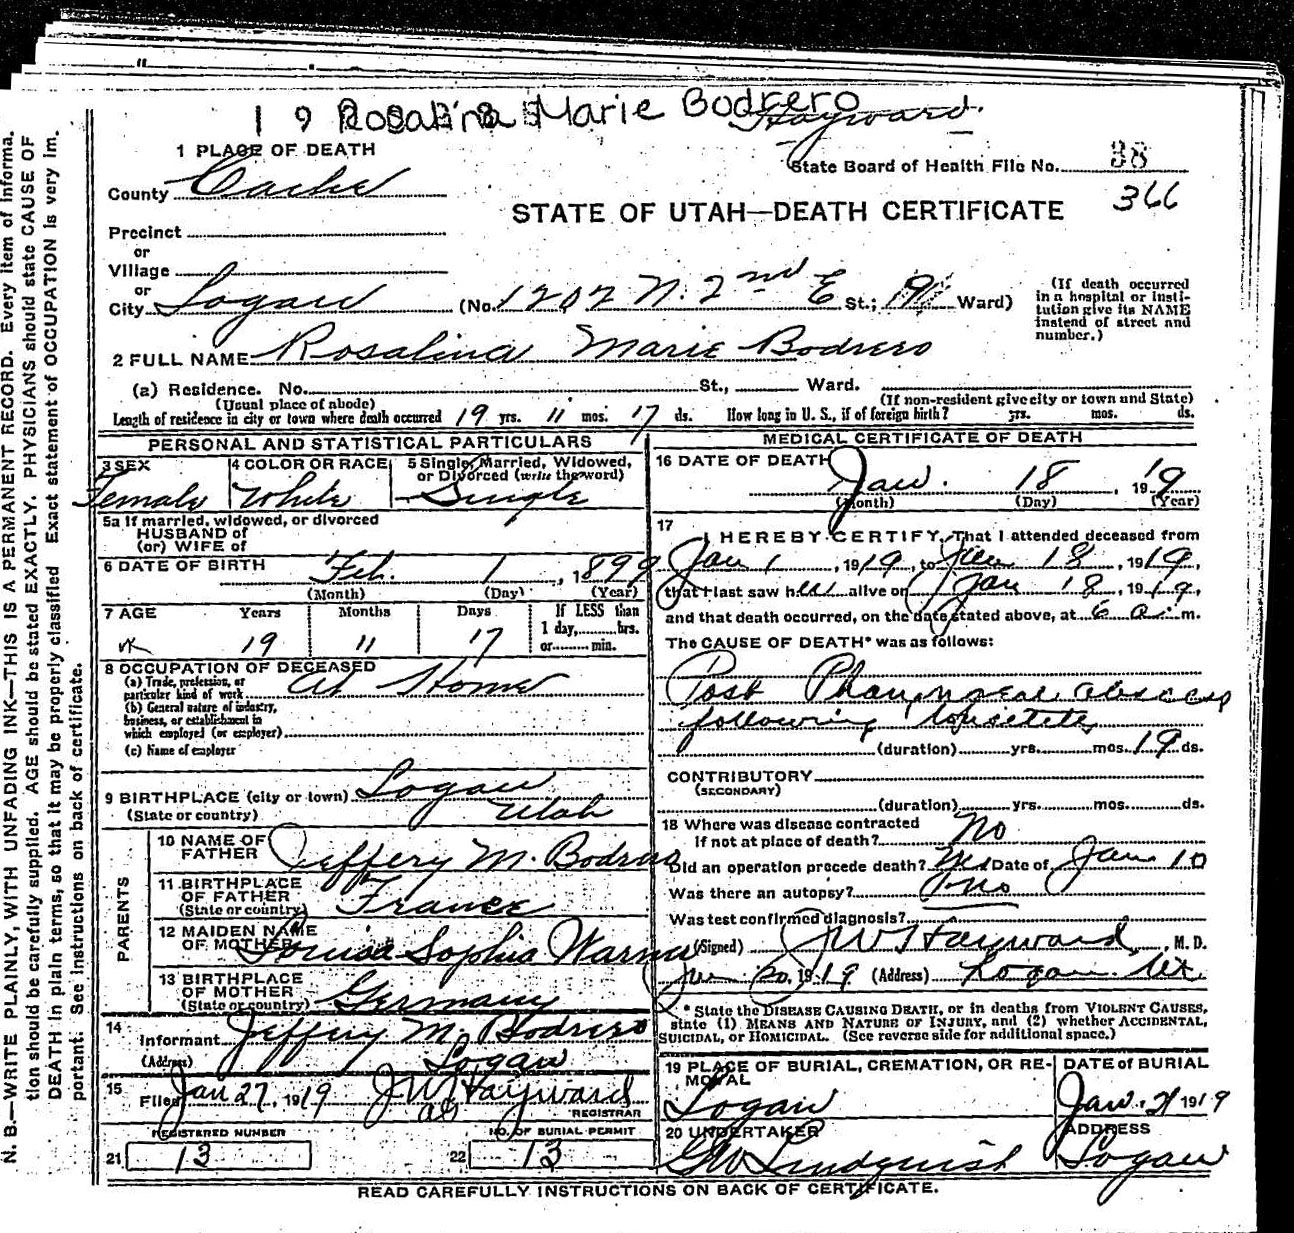 1 9 Rosalina Marie Bodrero
Hayward.
1 PLACE OF DEATH
State Board of Health File No. 38
County Cache
366
STATE OF UTAH—DEATH CERTIFICATE
Precinct
or
Village
or
City Logan (No. 1202 N. 2nd E St.; Ward)
(If death occurred in a hospital or insti-
tution give its NAME
instead of street and
number.)
2 FULL NAME Rosalina Marie Bodrero
(a) Residence. No. St., Ward.
(Usual place of abode) (If non-resident give city or town and State)
Length of residence in city or town where death occurred 19 yrs. 11 mos. 17 ds. How long in U. S., if of foreign birth? yrs. mos. ds.
PERSONAL AND STATISTICAL PARTICULARS
3 SEX Female
4 COLOR OR RACE White
5 Single, Married, Widowed,
or Divorced (write the word)
Single
5a If married, widowed, or divorced
HUSBAND of
(or) WIFE of
6 DATE OF BIRTH Feb. 1, 1899
(Month) (Day) (Year)
7 AGE Years Months Days If LESS than
1 day, hrs.
or min.
19 11 17
8 OCCUPATION OF DECEASED
(a) Trade, profession, or
particular kind of work At Home
(b) General nature of industry,
business, or establishment in
which employed (or employer)
(c) Name of employer
9 BIRTHPLACE (city or town) Logan
(State or country) Utah
PARENTS
10 NAME OF
FATHER Jeffery M. Bodrero
11 BIRTHPLACE
OF FATHER
(State or country) France
12 MAIDEN NAME
OF MOTHER Louisa Sophia
13 BIRTHPLACE
OF MOTHER
(State or country) Germany
14
Informant Jeffery M. Bodrero
(Address) Logan
15
Filed Jan 27, 1919 J W Hayward
REGISTRAR
REGISTERED NUMBER NO. OF BURIAL PERMIT
21 13 22 13
MEDICAL CERTIFICATE OF DEATH
16 DATE OF DEATH
Jan. 18, 1919
(Month) (Day) (Year)
17
I HEREBY CERTIFY, That I attended deceased from
Jan 1, 1919, to Jan 18, 1919,
that I last saw her alive on Jan 18, 1919,
and that death occurred, on the date stated above, at 6 a. m.
The CAUSE OF DEATH* was as follows:
Post Pharyngeal abscess
following
(duration) yrs. mos. 19 ds.
CONTRIBUTORY
(SECONDARY)
(duration) yrs. mos. ds.
18 Where was disease contracted
if not at place of death? No
Did an operation precede death? Yes Date of Jan 10
Was there an autopsy? no
Was test confirmed diagnosis?
(Signed) J W Hayward, M. D.
Jan 20, 1919 (Address) Logan Ut.
* State the DISEASE CAUSING DEATH, or in deaths from VIOLENT CAUSES,
state (1) MEANS AND NATURE OF INJURY, and (2) whether ACCIDENTAL,
SUICIDAL, or HOMICIDAL. (See reverse side for additional space.)
19 PLACE OF BURIAL, CREMATION, OR RE-
MOVAL
Logan
DATE of BURIAL
Jan. 21 1919
20 UNDERTAKER
G W Lindquist
ADDRESS
Logan
READ CAREFULLY INSTRUCTIONS ON BACK OF CERTIFICATE.
N. B.—WRITE PLAINLY, WITH UNFADING INK—THIS IS A PERMANENT RECORD. Every item of informa-
tion should be carefully supplied. AGE should be stated EXACTLY. PHYSICIANS should state CAUSE OF
DEATH in plain terms, so that it may be properly classified. Exact statement of OCCUPATION is very im-
portant. See instructions on back of certificate.